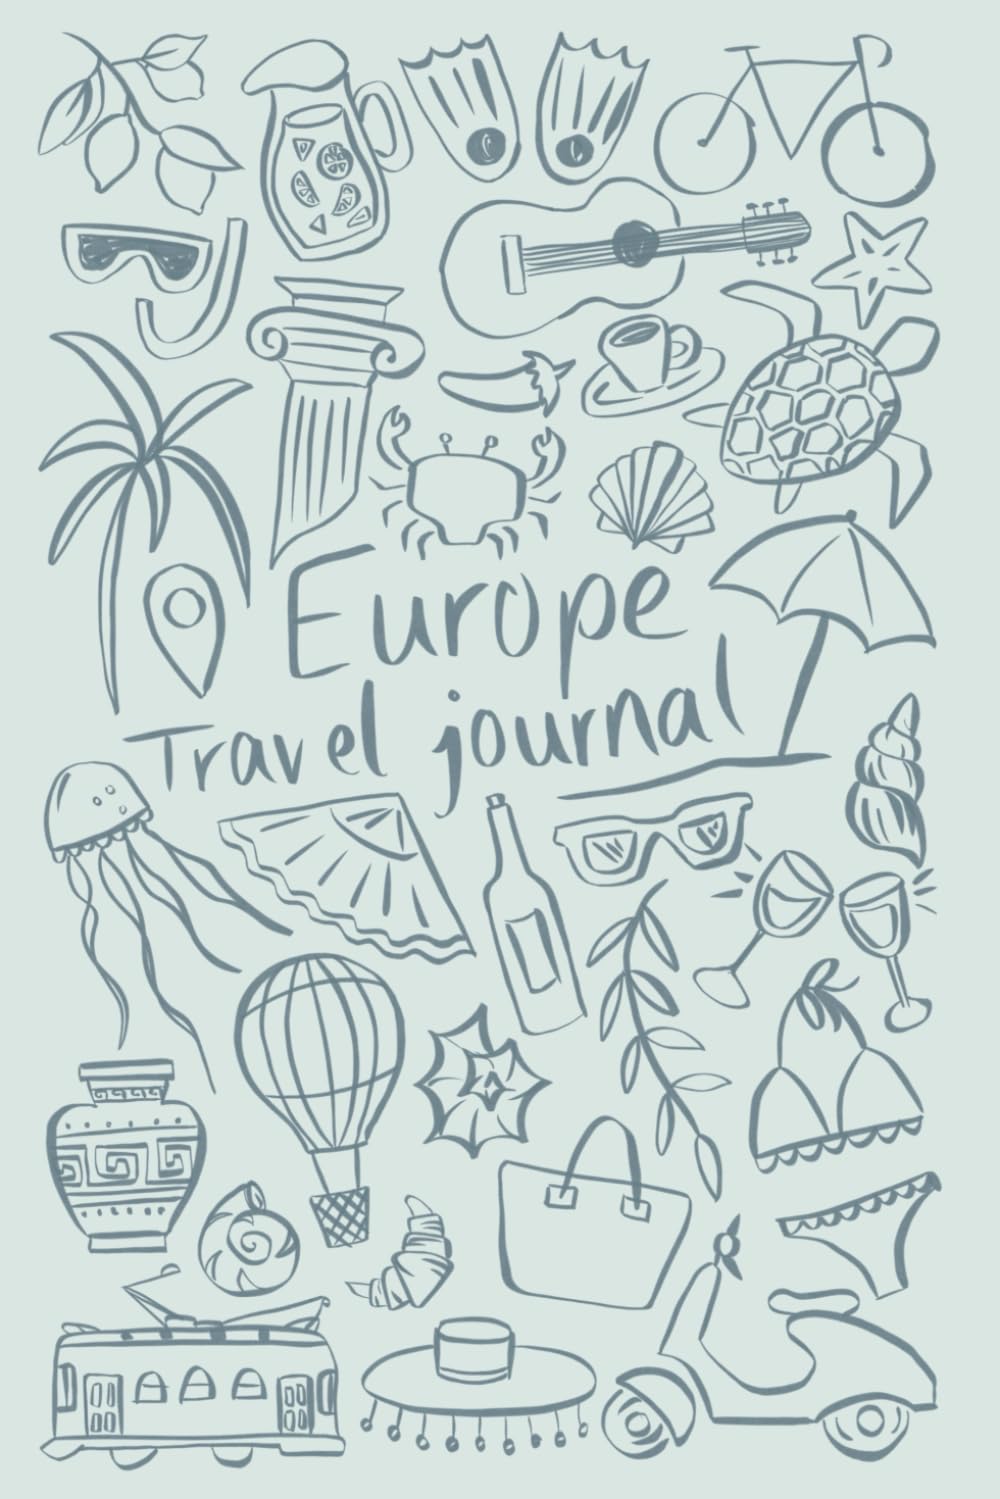 Europe
Travel journal